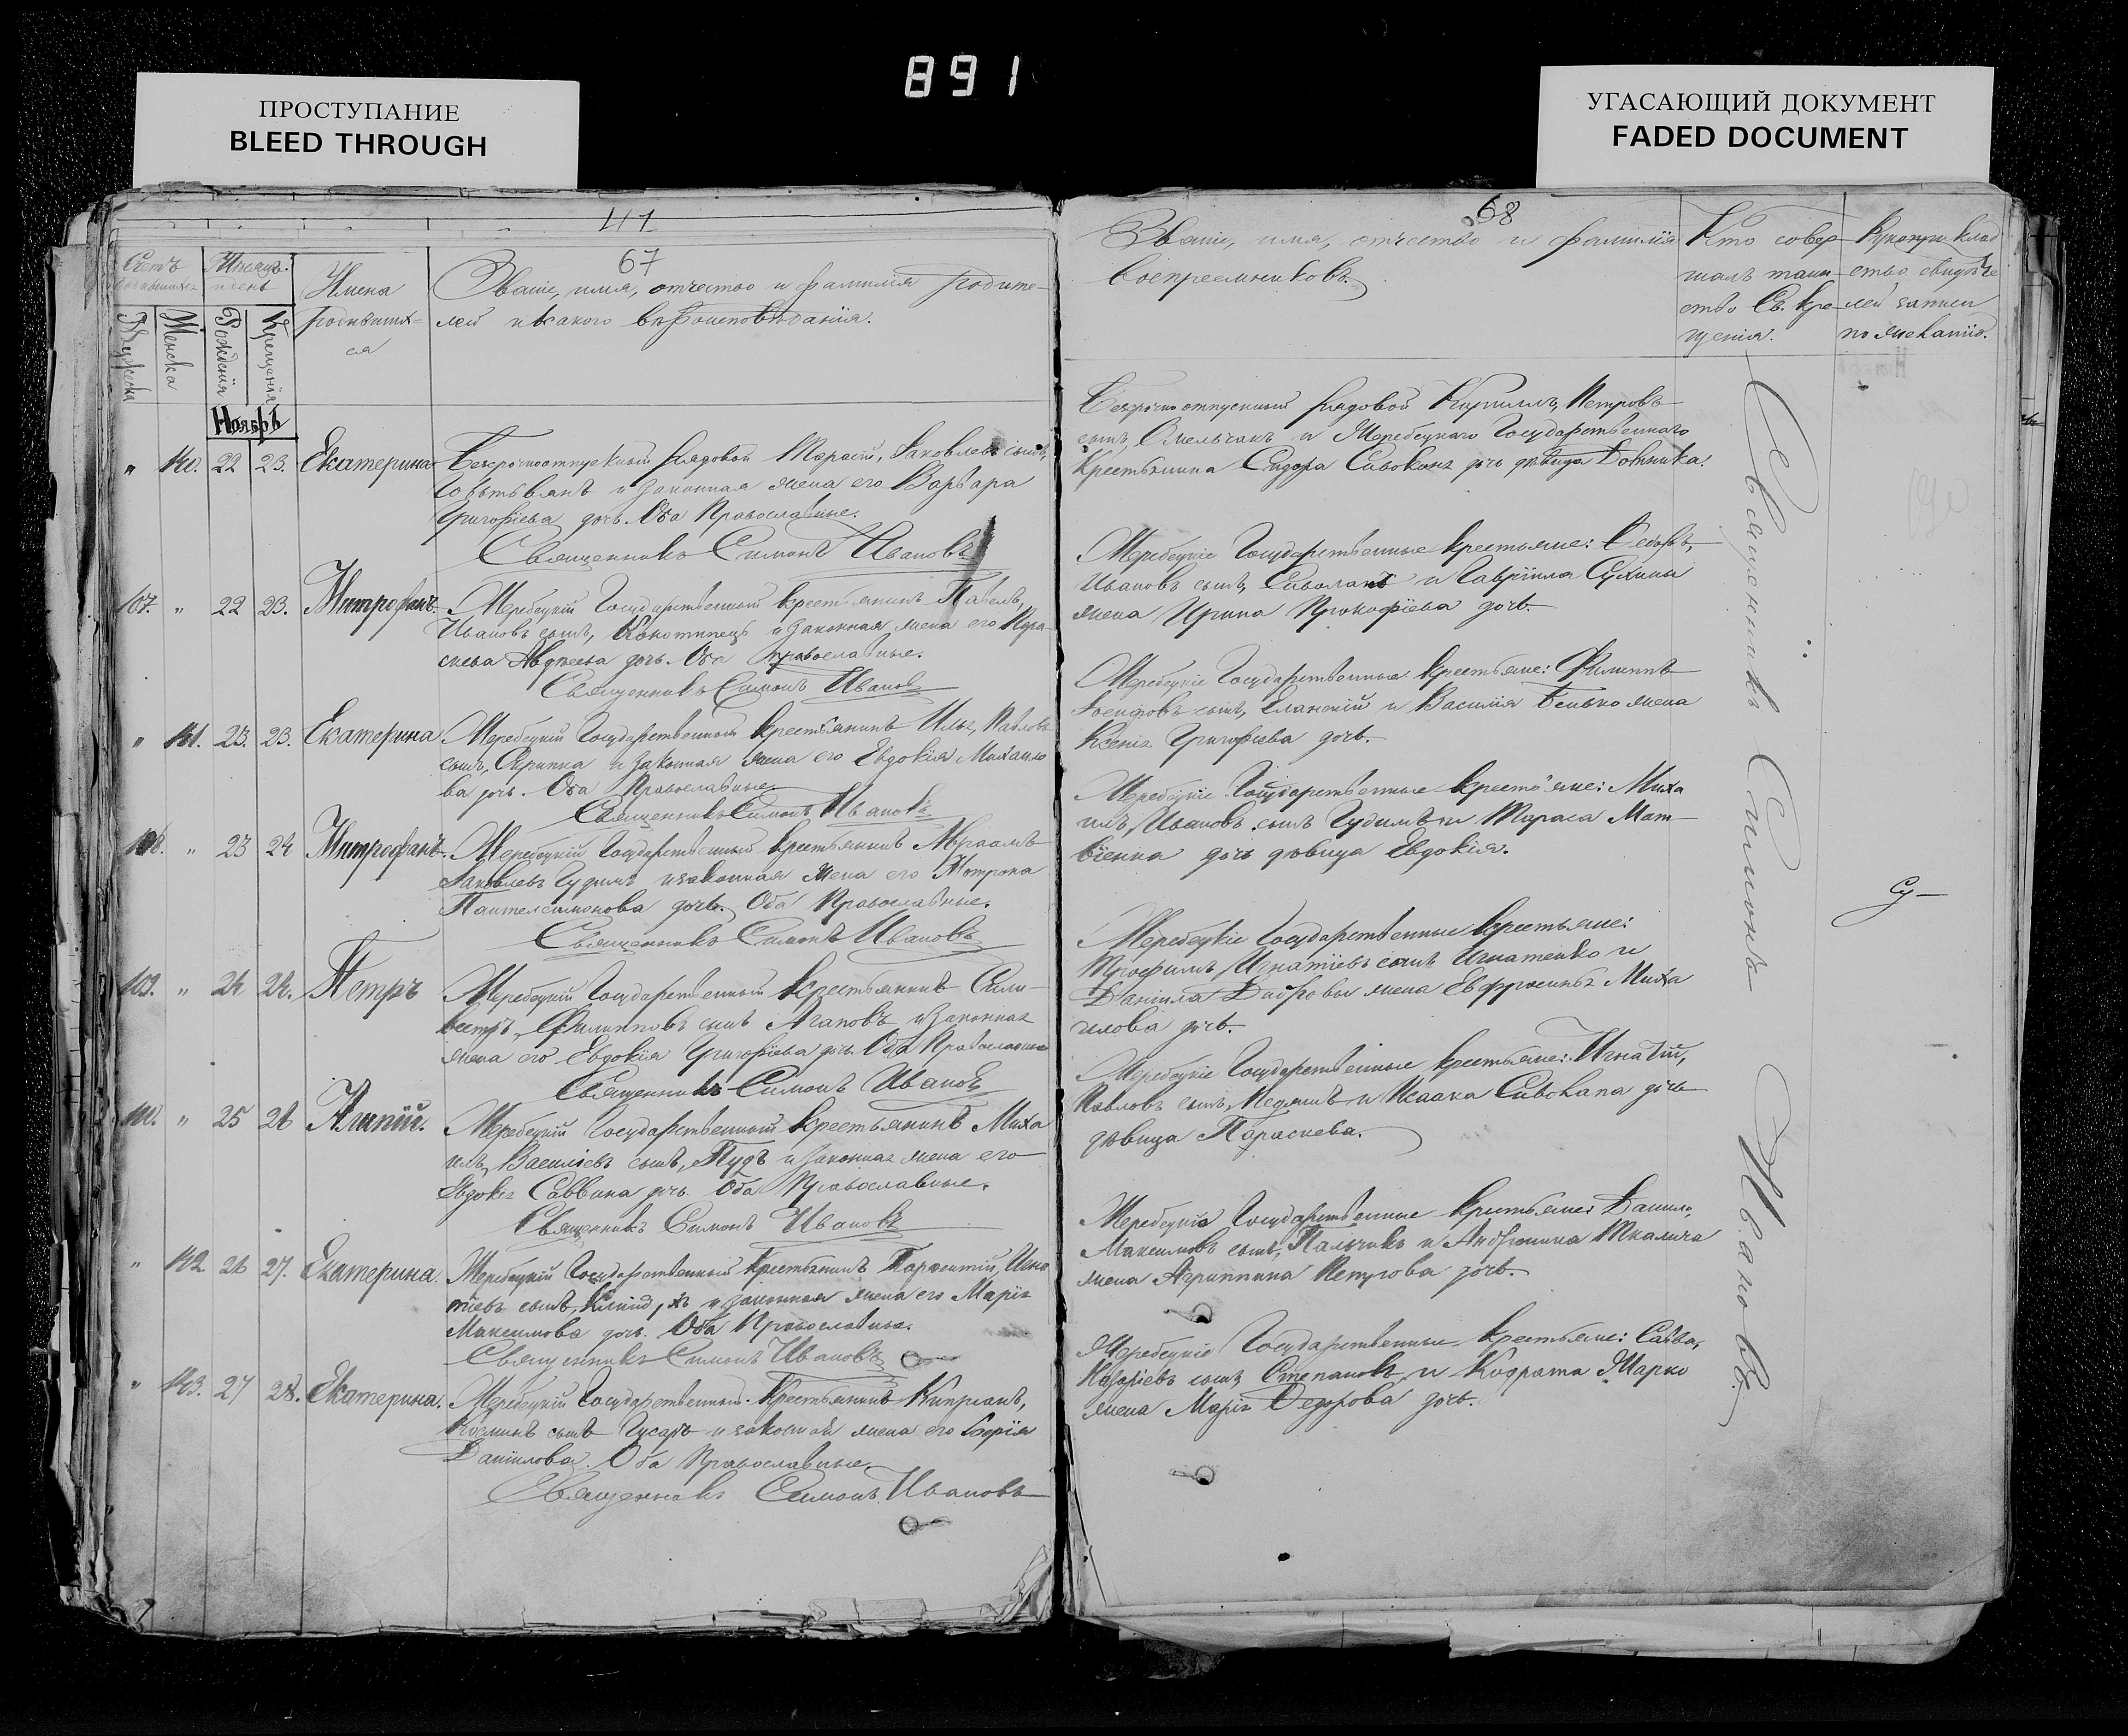 891
ПРОСТУПАНИЕ
BLEED THROUGH
УГАСАЮЩИЙ ДОКУМЕНТ
FADED DOCUMENT
41
67
Счетъ родившихся
Мужеска
Женска
Мѣсяцъ и день
Рожденія
Крещенія
Имена
родивших-
ся
Званіе, имя, отчество и фамилія родите-
лей и какого вѣроисповѣданія.
Ноябрь
" 140. 22 23. Екатерина
Безсрочноотпускный рядовой Тарасій, Яковлевъ сынъ,
и законная жена его Варвара
Григоріева дочь. Оба Православные.
Священникъ Симонъ Ивановъ
107. " 22 23. Митрофанъ.
Жеребецкій Государственный крестьянинъ Павелъ,
Ивановъ сынъ, и законная жена его Пара-
скева Авдеева дочь. Оба Православные.
Священникъ Симонъ Ивановъ
" 141. 23. 23. Екатерина
Жеребецкій Государственный крестьянинъ Илья, Павловъ
сынъ, Скрипка и законная жена его Евдокія Михаило
ва дочь. Оба Православные.
Священникъ Симонъ Ивановъ
108. " 23 24 Митрофанъ.
Жеребецкій Государственный крестьянинъ Авраамъ
Яковлевъ Чудимъ и законная жена его Матрона
Пантелеимонова дочь. Оба Православные.
Священникъ Симонъ Ивановъ
109. " 24 24. Петръ
Жеребецкій Государственный крестьянинъ Сили-
вестръ, Филипповъ сынъ Агаповъ и законная
жена его Евдокія Григоріева дочь. Оба Православные
Священникъ Симонъ Ивановъ
110. " 25 26 Алипій.
Жеребецкій Государственный крестьянинъ Миха
илъ, Василіевъ сынъ, Пудъ и законная жена его
Евдокія Саввина дочь. Оба Православные.
Священникъ Симонъ Ивановъ
" 142 26 27. Екатерина.
Жеребецкій Государственный крестьянинъ Игна
тіевъ сынъ, и законная жена его Марія
Максимова дочь. Оба Православные.
Священникъ Симонъ Ивановъ
" 143. 27 28. Екатерина.
Жеребецкій Государственный крестьянинъ Кипріанъ,
Косминъ сынъ Гусаръ и законная жена его
Даніилова. Оба Православные.
Священникъ Симонъ Ивановъ
68
Званіе, имя, отчество и фамилія
воспреемниковъ.
Кто совер-
шалъ таин-
ство Св. Кре-
щенія.
Рукоприклад
ство свидѣте
лей записи
по желанію.
Безсрочноотпускный рядовой Кириллъ, Петровъ
сынъ, Омельчакъ и Жеребецкаго Государственнаго
Крестьянина Сидора Сивокона дочь дѣвица Домника.
Жеребецкіе Государственные крестьяне: Ѳедоръ,
Ивановъ сынъ, и Гавріила Сухины
жена Ирина Прокофіева дочь.
Жеребецкіе Государственные крестьяне: Филиппъ
Іосифовъ сынъ, Еланскій и Василія Бенько жена
Ксенія Григоріева дочь.
Жеребецкіе Государственные крестьяне: Миха
илъ, Ивановъ сынъ Чудимъ и Тараса Мат-
віенка дочь дѣвица Евдокія.
Жеребецкіе Государственные крестьяне:
Трофимъ, Игнатіевъ сынъ Игнатенко и
Даніила Дибровы жена Евфросинья Миха
илова дочь.
Жеребецкіе Государственные крестьяне: Игнатій,
Павловъ сынъ, и Исаака Сивокапа дочь
дѣвица Параскева.
Жеребецкіе Государственные крестьяне: Даніилъ,
Максимовъ сынъ, Пальчикъ и Андроника Ткалича
жена Агриппина Петрова дочь.
Жеребецкіе Государственные крестьяне: Савва,
Назаріевъ сынъ Степановъ и Кодрата Марко
жена Марія Ѳедорова дочь.
Священникъ Симонъ Ивановъ.